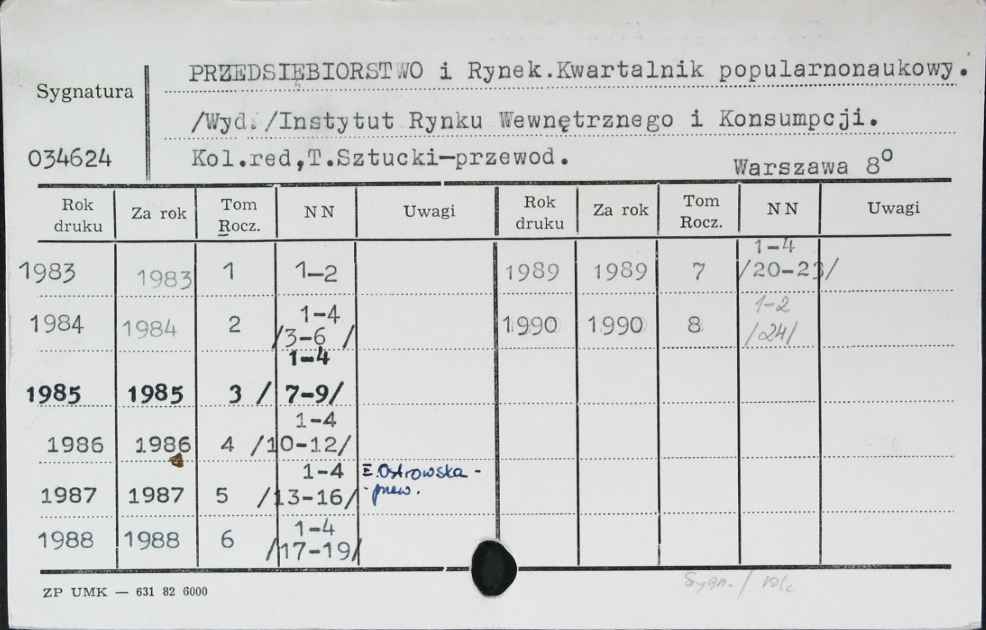 PRZEDSIĘBIORSTWO i Rynek.Kwartalnik popularnonaukowy.
Sygnatura
/Wyd./Instytut Rynku Wewnętrznego i Konsumpcji.
034624
Kol.red,T.Sztucki-przewod.
Warszawa 8°
Rok druku Za rok Tom Rocz. NN Uwagi Rok druku Za rok Tom Rocz. NN Uwagi
1983 1983 1 1-2 1989 1989 7 1-4 /20-23/
1984 1984 2 1-4 /3-6 / 1990 1990 8 1-2 /24/
1985 1985 3 1-4 / 7-9/
1986 1986 4 1-4 /10-12/
1987 1987 5 1-4 /13-16/ E.Ostrowska -
- przew.
1988 1988 6 1-4 /17-19/
ZP UMK — 631 82 6000
Sygn. /